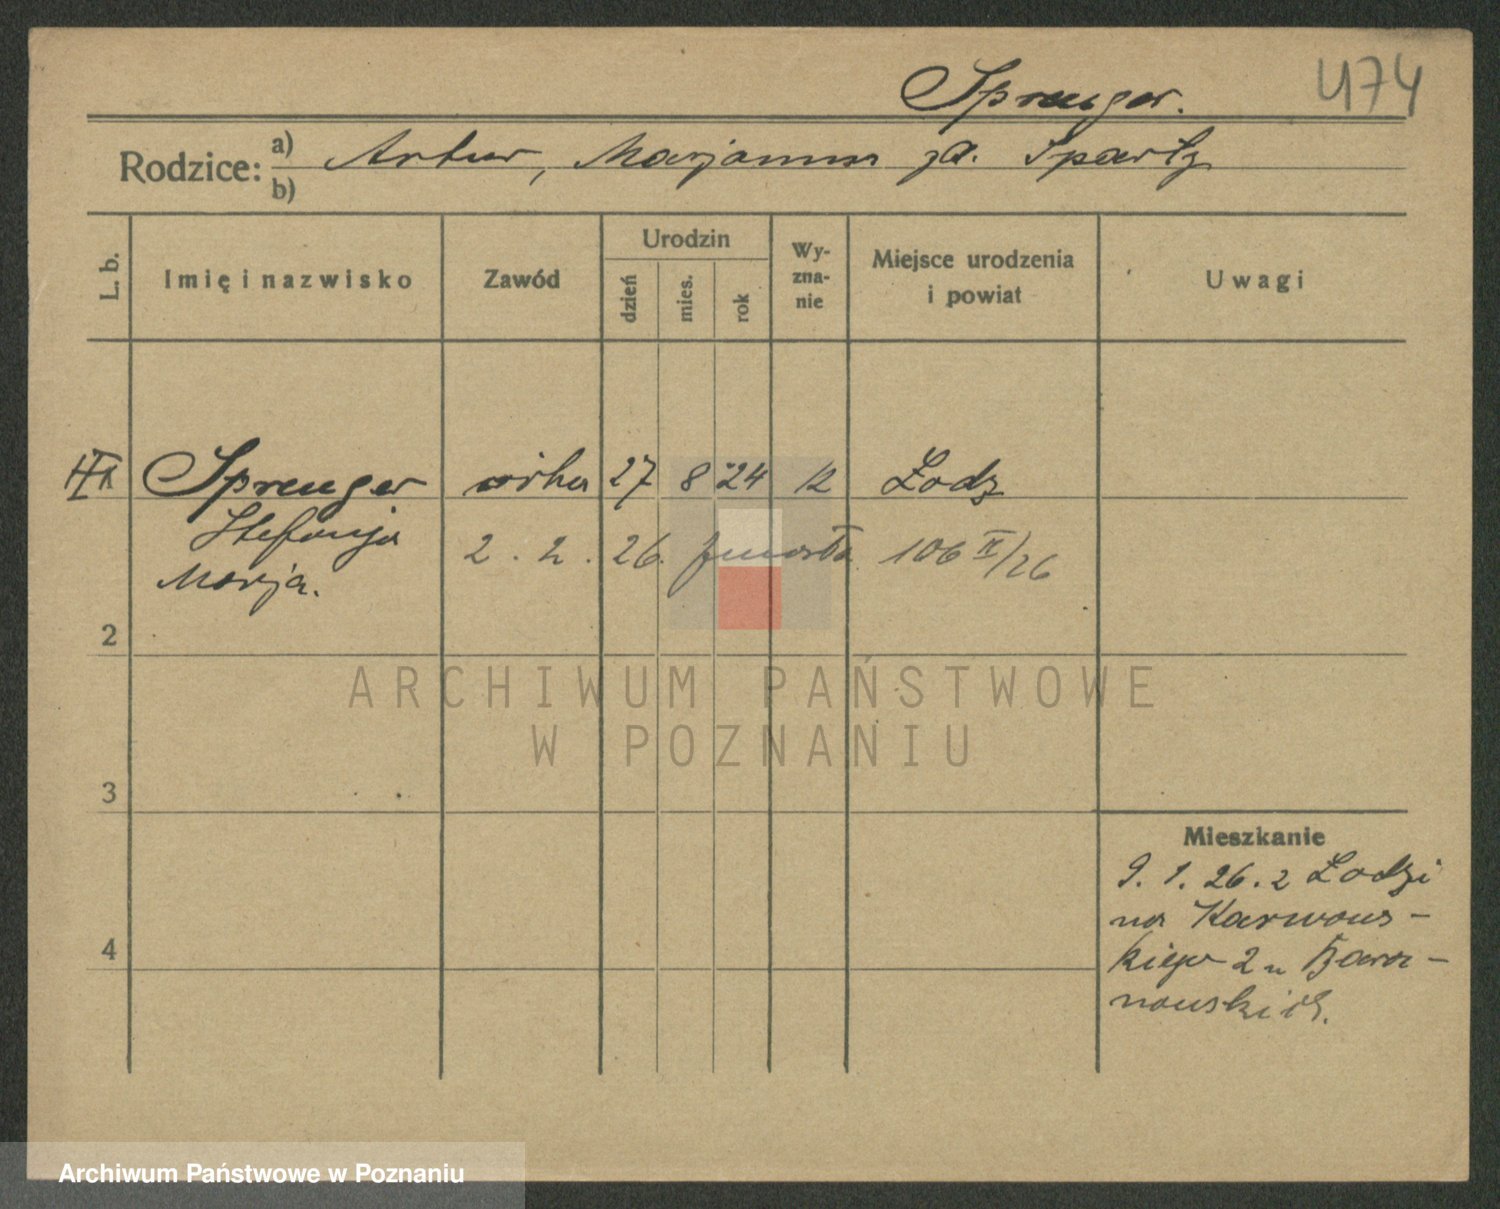 474
Sprenger.
Rodzice: a) Artur, Marjanna zd. Spartz
b)
L. b. Imię i nazwisko Zawód Urodzin dzień mies. rok Wy-zna-nie Miejsce urodzenia i powiat Uwagi
Sprenger córka 27 8 24 k Łodz
Stefanja 2. 2. 26. zmarła 106 II/26
Marja.
2
3
4
Mieszkanie
9. 1. 26. z Łodzi
na Karwows-
kiego 2 u Bara-
nowskich.
ARCHIWUM PAŃSTWOWE
W POZNANIU
Archiwum Państwowe w Poznaniu